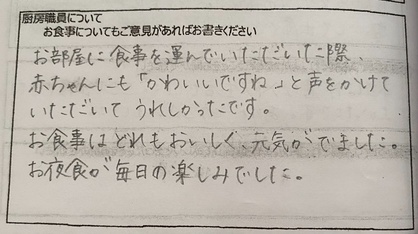 厨房職員について
お食事についてもご意見があればお書きください
お部屋に食事を運んでいただいた際、
赤ちゃんにも「かわいいですね」と声をかけて
いただいて うれしかったです。
お食事はどれもおいしく、元気がでました。
お夜食が毎日の楽しみでした。